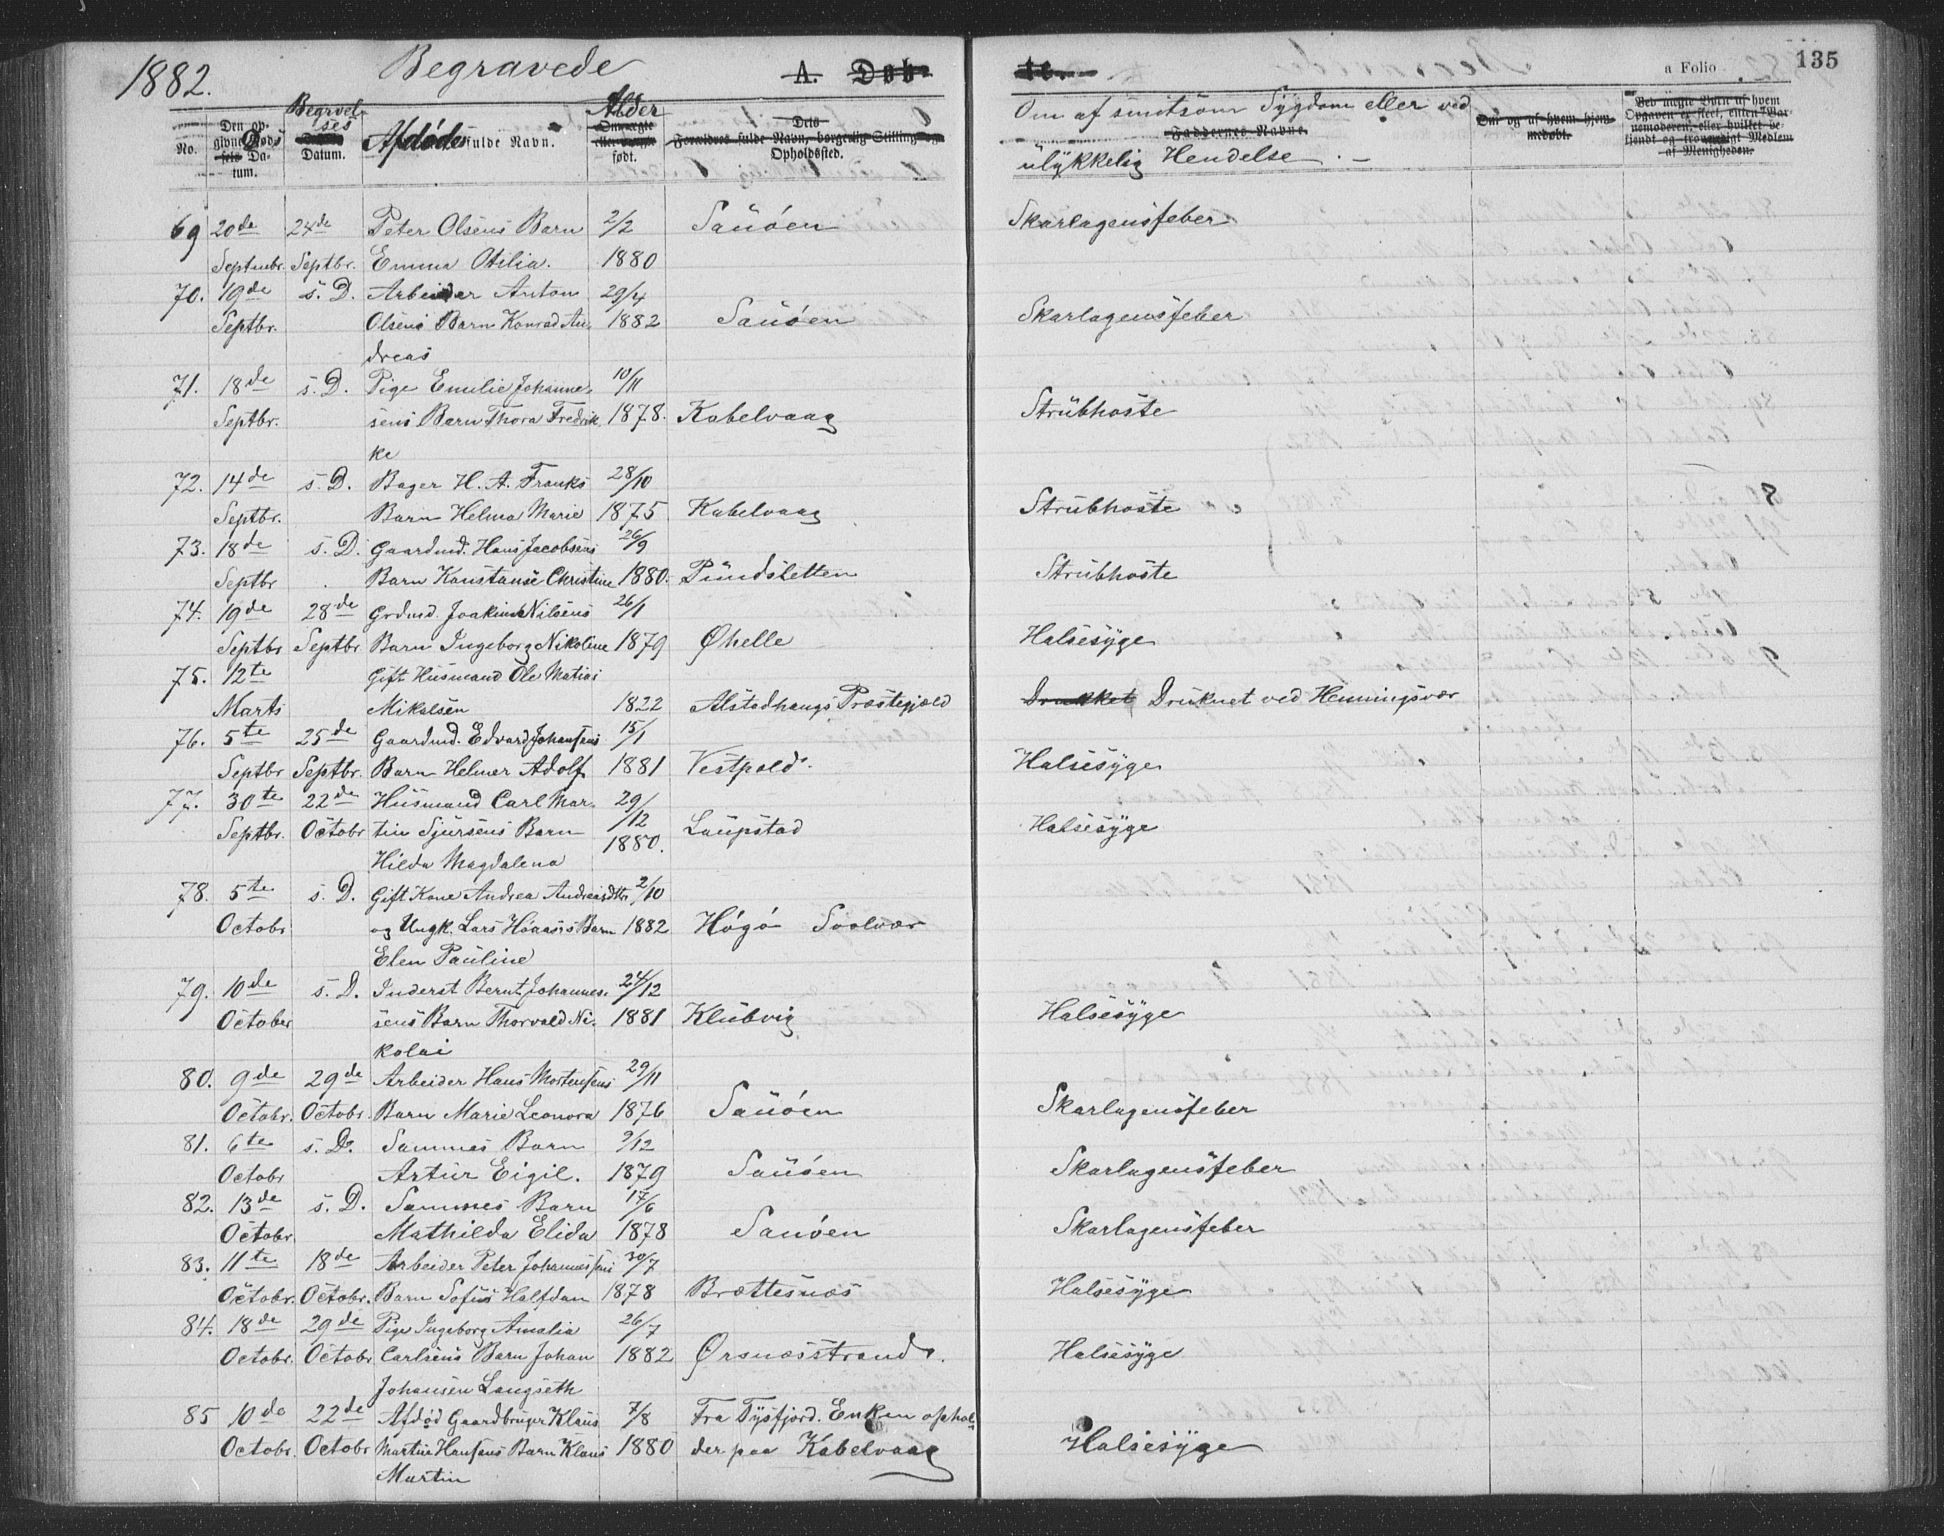 1882.
Begravede
A. Døb-
te.
a Folio
135
No.
Den op-
givne Døds
Da-
tum.
Begravel-
ses
Datum.
Afdødes fulde Navn.
Alder
Om ægte
eller uægte
født.
Dets
Forældres fulde Navn, borgerlig Stilling og
Opholdssted.
Om af smitsom Sygdom eller ved
Faddernes Navne.
ulykkelig Hendelse. —
Om og af hvem hjem-
medøbt.
Ved uægte Børn af hvem
Opgaven er skeet, enten Bar-
nemoderen, eller hvilket be-
kjendt og troværdigt Medlem
af Menigheden.
69 20de 24de Peter Olsens Barn 2/2 Sauøen Skarlagensfeber
Septmbr. Septbr. Emma Otilia. 1880
70. 19de s. D. Arbeider Anton 29/4
Septbr. Olsens Barn Konrad An- 1882 Sauøen Skarlagensfeber
dreas
71. 18de s. D. Pige Emilie Johanne- 10/11
Septbr. sens Barn Thora Fredrik- 1878. Kabelvaag Strubhoste
ke
72. 14de s. D. Bager H. A. Franks 28/10
Septbr. Barn Helma Marie 1875 Kabelvaag Strubhoste
73. 18de s. D. Gaardmd. Hans Jacobsens 26/9
Septbr Barn Konstanse Christine 1880. Pundsletten Strubhoste
74. 19de 28de Grdmd. Joakim Nilsens 26/1
Septbr Septbr. Barn Ingeborg Nikoline 1879 Øhelle Halsesyge
75. 12te Gift Husmand Ole Matias
Marts Mikalsen 1822 Alstadhaugs Præstegjæld Druknet ved Henningsvær
76. 5te 25de Gaardmd. Edvard Johansens 15/1
Septbr Septbr. Barn Helmer Adolf 1881 Vestpold. Halsesyge
77. 30te 22de Husmand Carl Mar- 29/12
Septbr. Octobr tin Sjursens Barn 1880. Laupstad Halsesyge
Hilda Magdalena
78. 5te s. D. Gift Kone Andrea Andreasdtr 2/10
Octobr og Ungk. Lars Haaos's Barn 1882 Høgø Svolvær
Elen Pauline
79. 10de s. D. Inderst Bernt Johannes- 24/12
October sens Barn Thorvald Ni- 1881 Klubvig Halsesyge
kolai
80. 9de 29de Arbeider Hans Mortensens 29/11
Octobr. Octobr. Barn Marie Leonora 1876 Sauøen Skarlagensfeber
81. 6te s. D. Sammes Barn 9/12
Octobr Artur Eigil. 1879 Sauøen Skarlagensfeber
82. 13de s. D. Sammes Barn 17/6
Octobr. Mathilda Elida 1878 Sauøen Skarlagensfeber
83. 11te 18de Arbeider Peter Johannessens 30/7
Octobr. Octobr. Barn Sofus Halfdan 1878 Brættesnæs Halsesyge
84. 18de 29de Pige Ingeborg Amalia 26/7
Octobr. Octobr Carlsens Barn Johan 1882 Ørsnæsstrand. Halsesyge
Johansen Langseth
85 10de 22de Afdød Gaardbruger Klaus 7/8 Fra Tysfjord. Enken ophol-
Octobr. Octobr Martin Hansens Barn Klaus 1880 der paa Kabelvaag Halsesyge
Martin